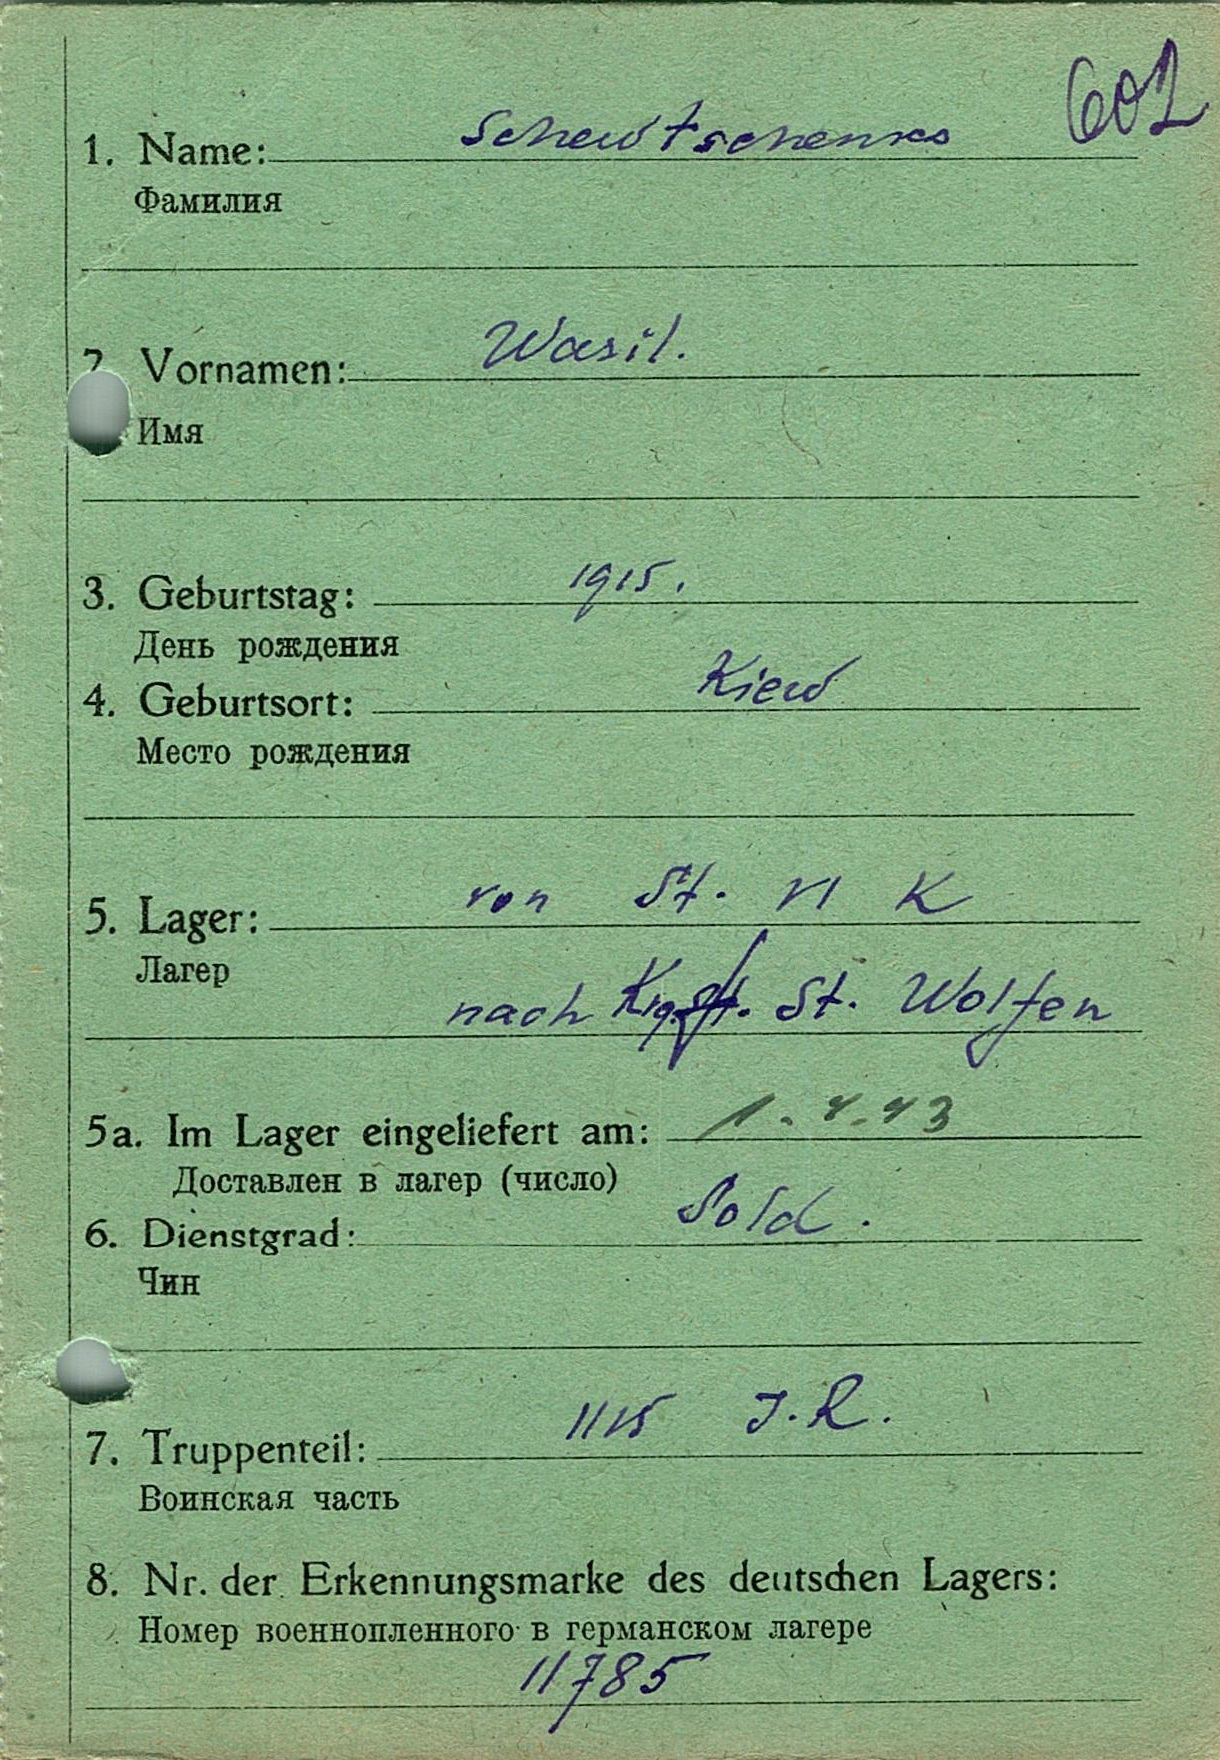 602
1. Name: Schewtschenko
Фамилия
2. Vornamen: Wasil.
Имя
3. Geburtstag: 1915.
День рождения
4. Geburtsort: Kiew
Место рождения
5. Lager: von St. VI K
Лагер
nach St. Wolfen
5a. Im Lager eingeliefert am: 1.4.43
Доставлен в лагер (число)
6. Dienstgrad: Sold.
Чин
7. Truppenteil: 1115 J.R.
Воинская часть
8. Nr. der Erkennungsmarke des deutschen Lagers:
Номер военнопленного в германском лагере
11785